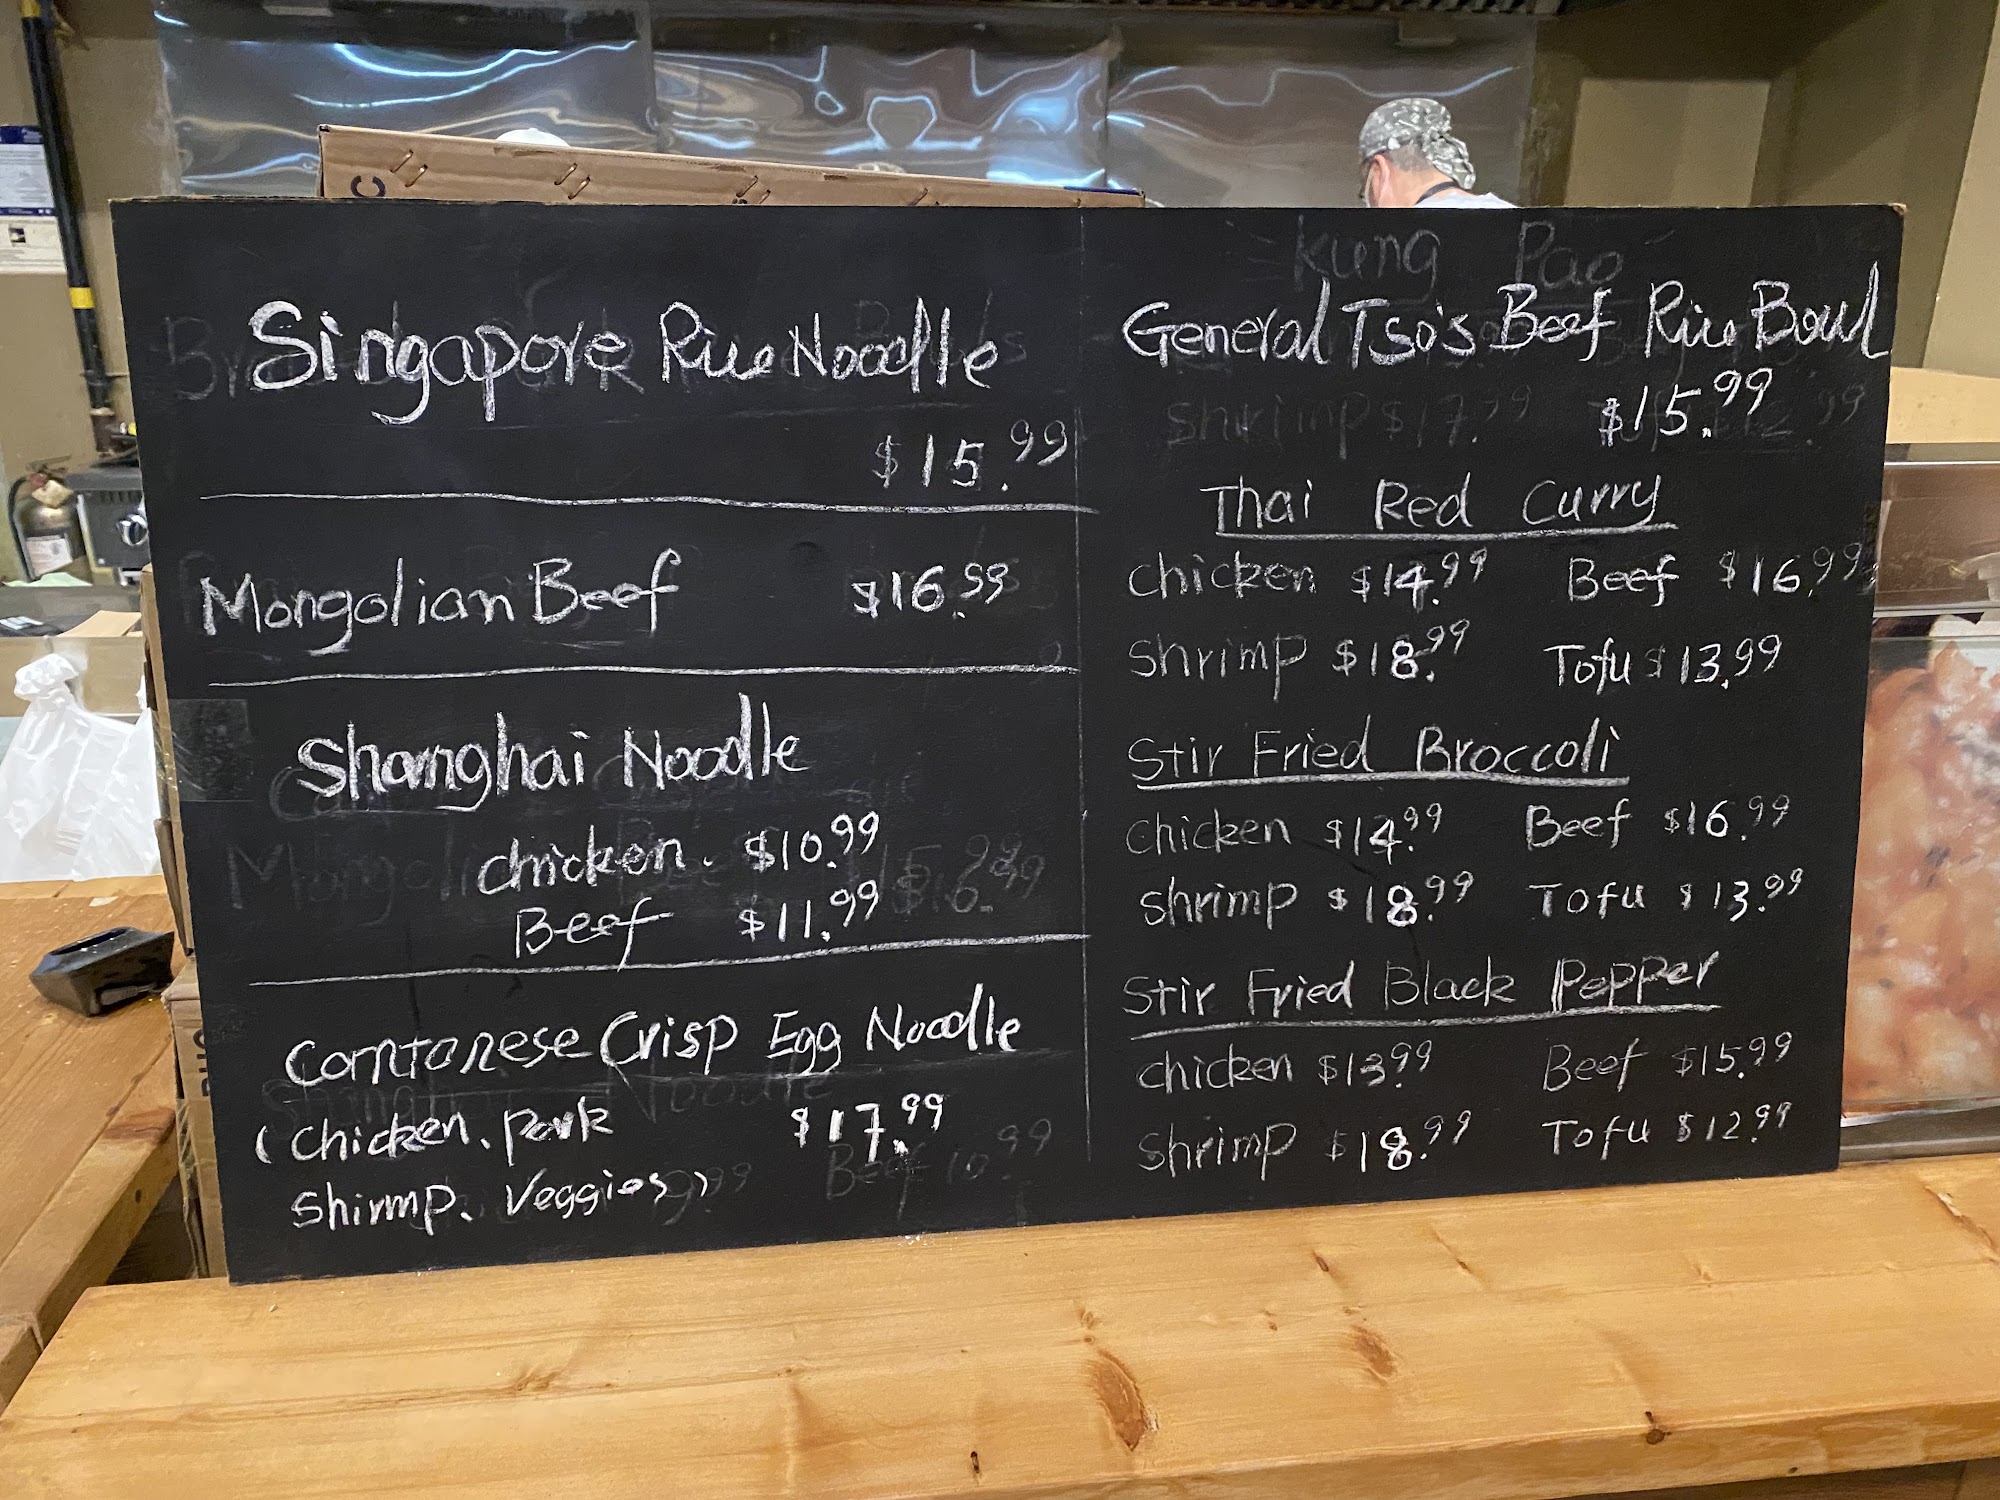 Singapore Rice Noodle
$15.99
Mongolian Beef $16.99
Shanghai Noodle
chicken. $10.99
Beef $11.99
Contonese Crisp Egg Noodle
(chicken, pork $17.99
shirmp, veggies)
Kung Pao
General Tso's Beef Rice Bowl
shrimp $17.99 $15.99
Thai Red Curry
chicken $14.99 Beef $16.99
shrimp $18.99 Tofu $13.99
Stir Fried Broccoli
chicken $14.99 Beef $16.99
shrimp $18.99 Tofu $13.99
Stir Fried Black Pepper
chicken $13.99 Beef $15.99
shrimp $18.99 Tofu $12.99